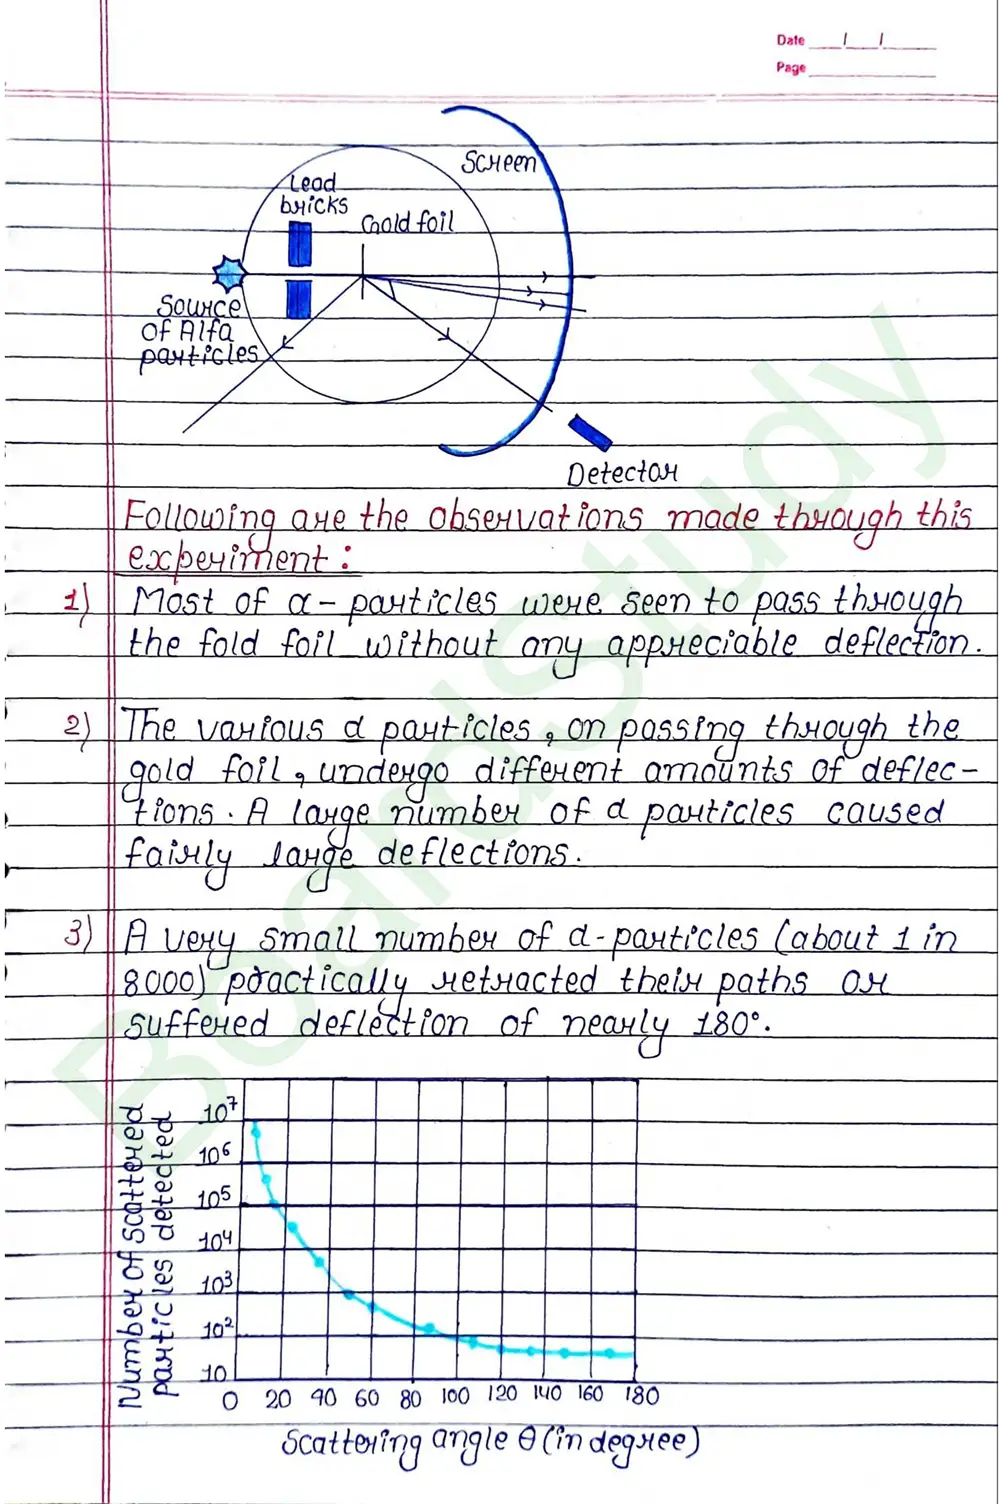 Date / /
Page
Screen
Lead
bricks
Gold foil
Source
of Alfa
particles
Detector
Following are the observations made through this
experiment :
1) Most of α - particles were seen to pass through
the fold foil without any appreciable deflection.
2) The various α particles, on passing through the
gold foil, undergo different amounts of deflec-
tions. A large number of α particles caused
fairly large deflections.
3) A very small number of α-particles (about 1 in
8000) practically retracted their paths or
suffered deflection of nearly 180°.
Number of scattered
particles detected
10⁷
10⁶
10⁵
10⁴
10³
10²
10
0 20 40 60 80 100 120 140 160 180
Scattering angle θ (in degree)
BoardStudy